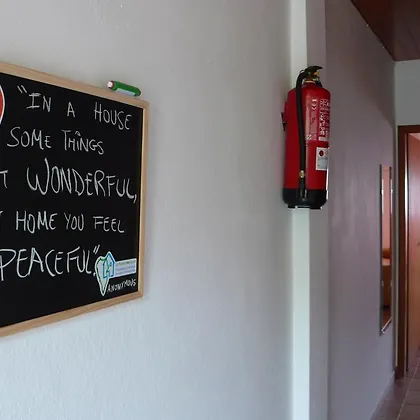 "IN A HOUSE
SOME THINGS
WONDERFUL,
HOME YOU FEEL
PEACEFUL".
ANONYMOUS